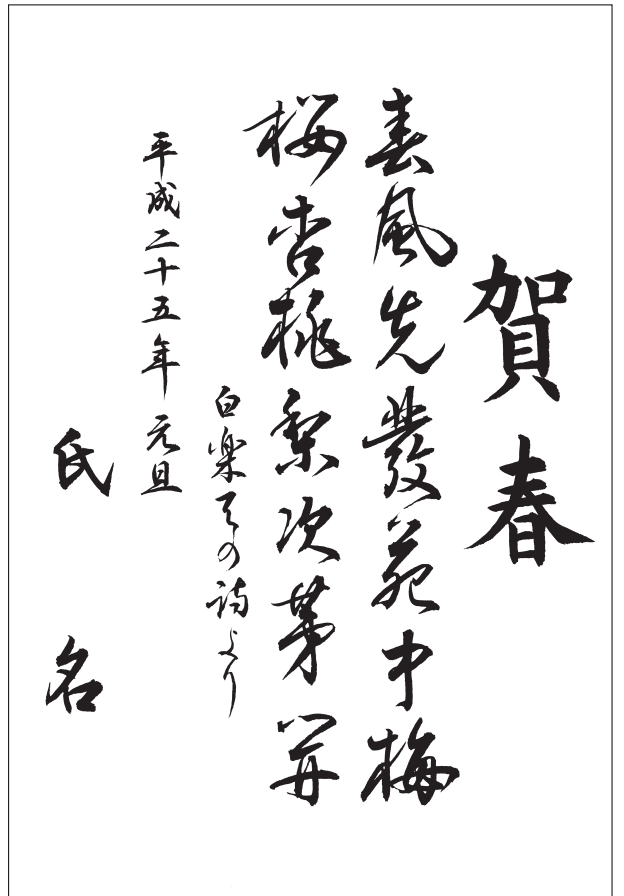 賀春
春風先發苑中梅
桜杏桃梨次第開
白楽天の詩より
平成二十五年元旦
氏名